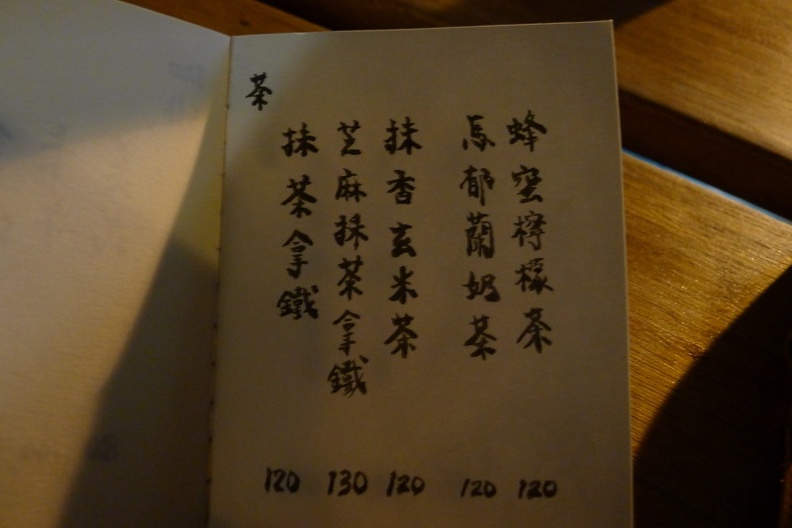 茶
抹茶拿鐵 120
芝麻抹茶拿鐵 130
抹香玄米茶 120
馬郁蘭奶茶 120
蜂蜜檸檬茶 120